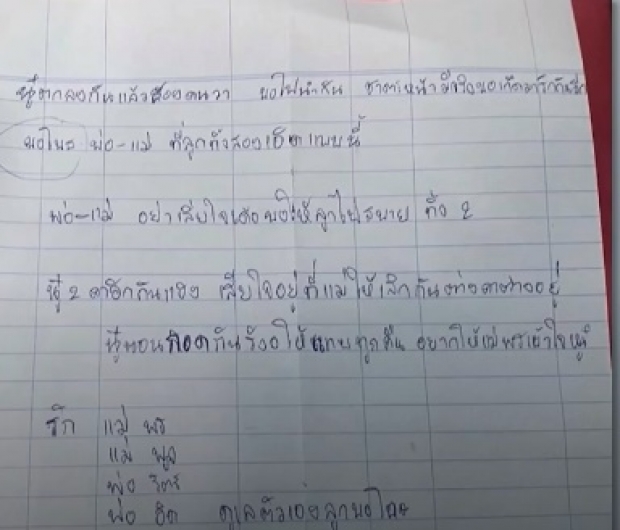 หนูตกลงกันแล้วสองคนว่า ขอไปนำกัน ชาติหน้ามีจริงขอเกิดมารักกันอีก
ขอโทษ พ่อ-แม่ ที่ลูกทั้งสองเฮ็ดแบบนี้
พ่อ-แม่ อย่าเสียใจเด้อ ขอให้ลูกไปสบาย ทั้ง 2
หนู 2 คนฮักกันแฮง เสียใจอยู่ที่แม่ให้เลิกกัน
หนูนอนกอดกันร้องไห้แทบทุกคืน อยากให้แม่พรเข้าใจหนู
รัก แม่ พร
แม่ พูล
พ่อ
พ่อ ดูแลตัวเองลูกขอโทษ